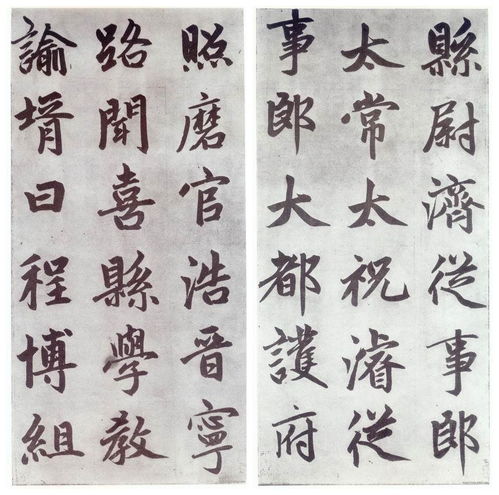 縣尉濟從事郎
太常太祝濬從
事郎大都護府
照磨官浩晉寧
路聞喜縣學教
諭壻曰程博組